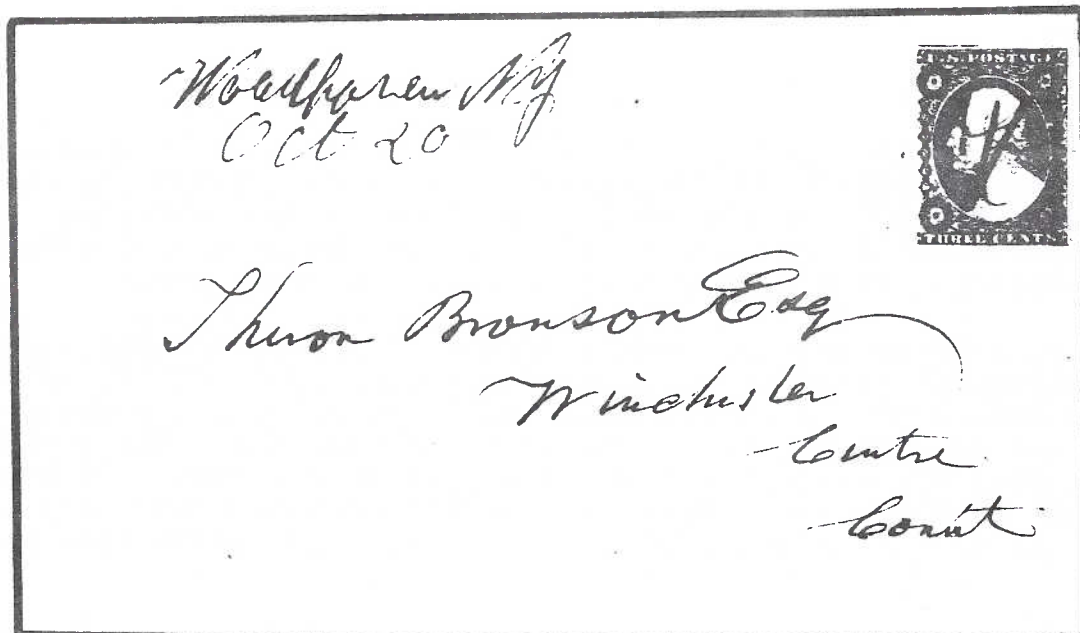 Woodhaven NY
Oct 20
U.S. POSTAGE
THREE CENTS
Theron Bronson Esq
Winchester
Centre
Connt